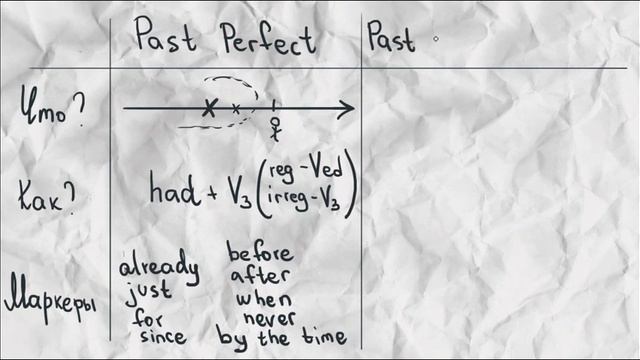 Past Perfect
Past
Что?
Как?
had + V₃ (reg - Ved
irreg - V₃)
Маркеры
already
just
for
since
before
after
when
never
by the time